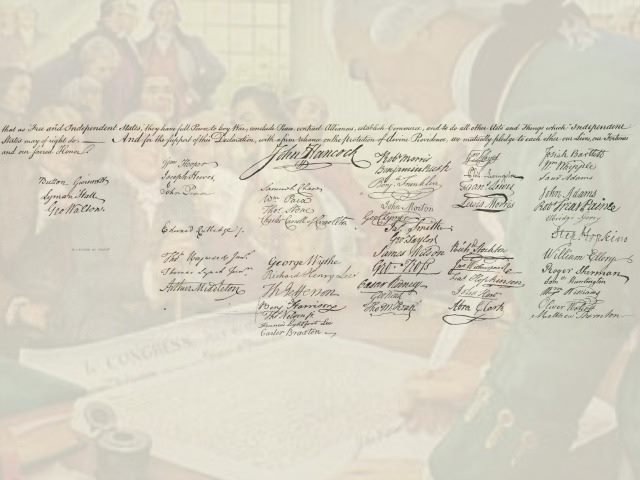 that as Free and Independent States, they have full Power to levy War, conclude Peace, contract Alliances, establish Commerce, and to do all other Acts and Things which Independent
States may of right do. And for the support of this Declaration, with a firm reliance on the protection of divine Providence, we mutually pledge to each other our Lives, our Fortunes
and our Sacred Honor.
Button Gwinnett
Lyman Hall
Geo Walton.
Wm Hooper
Joseph Hewes,
John Penn
Edward Rutledge /.
Thos Heyward Junr.
Thomas Lynch Junr.
Arthur Middleton
John Hancock
Samuel Chase
Wm Paca
Thos Stone
Charles Carroll of Carrollton
George Wythe
Richard Henry Lee
Th Jefferson
Benj Harrison
Thos Nelson jr
Francis Lightfoot Lee
Carter Braxton
Robt Morris
Benjamin Rush
Benj Franklin
John Morton
Geo Clymer
Jas Smith
Geo Taylor
James Wilson
Geo Ross
Caesar Rodney
Geo Read
Tho M:Kean
Phil Livingston
Lewis Morris
Richd Stockton
Jno Witherspoon
Fras Hopkinson
John Hart
Abra Clark
Josiah Bartlett
Wm Whipple
Saml Adams
John Adams
Robt Treat Paine
Elbridge Gerry
Step Hopkins
William Ellery
Roger Sherman
Sam Huntington
Wm Williams
Oliver Wolcott
Matthew Thornton
IN CONGRESS